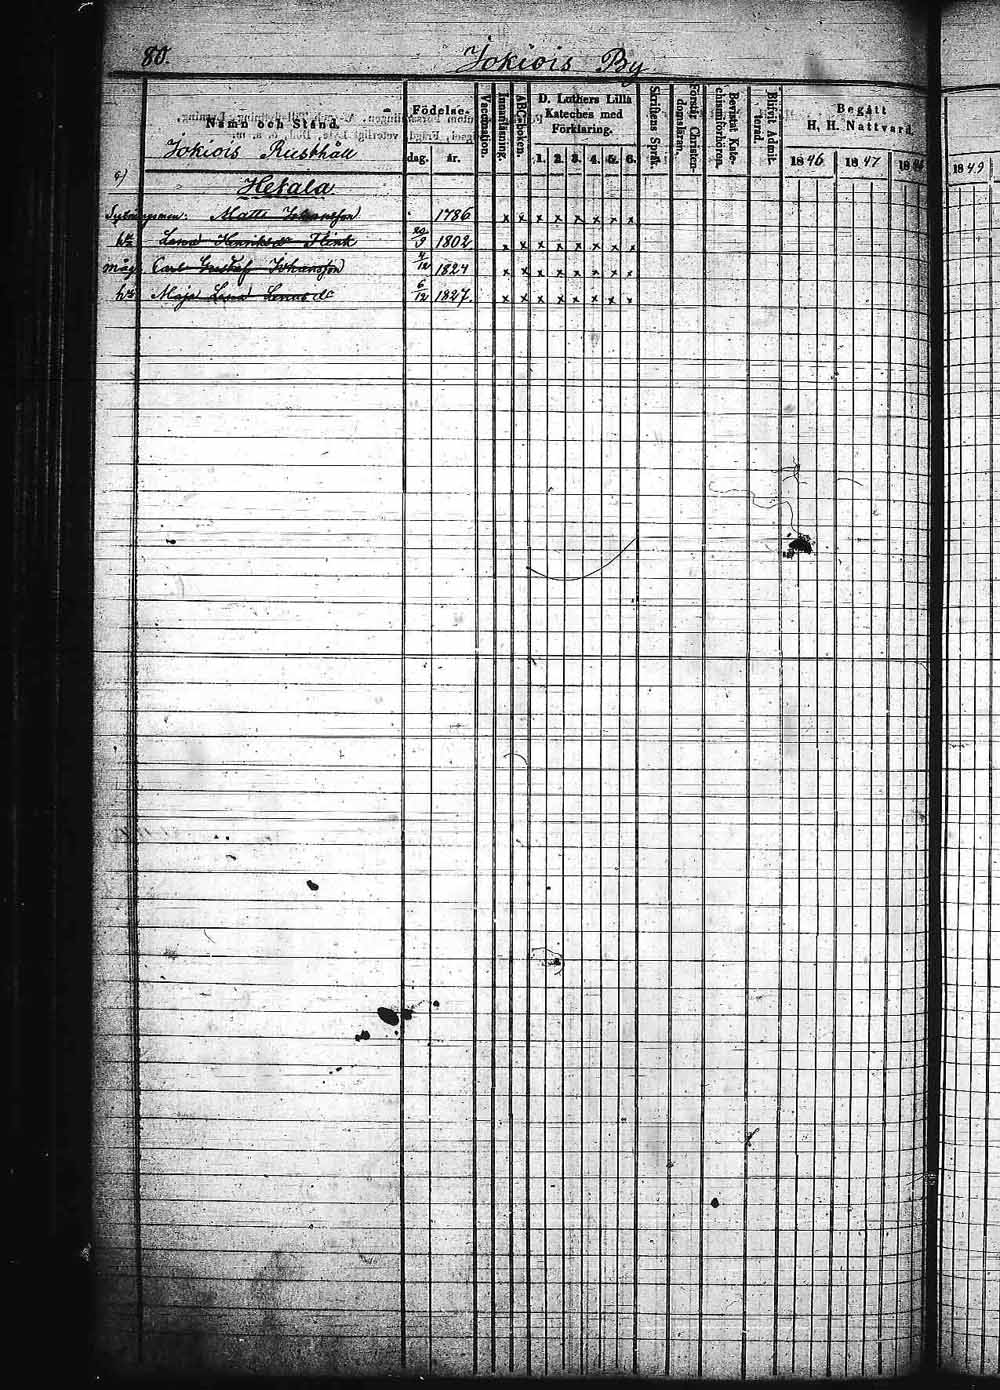 80. Jokiois By
Namn och Stånd.
Födelse-
dag. år.
Vaccination.
Innanläsning.
ABC-boken.
D. Luthers Lilla
Kateches med
Förklaring.
1. 2. 3. 4. 5. 6.
Skriftens Språk.
Förstår Christen-
domsläran.
Bevistat Kate-
chismiförhören.
Blifvit Admit-
terad.
Begått
H. H. Nattvard.
1846 1847 18 1849
Jokiois Rusthåll
Hekala
Matts Johansson 1786 x x x x x x x x
hu Lena Henriksdr Flink 29/9 1802 x x x x x x x x
måg Carl Gustaf Johansson 4/12 1824 x x x x x x x x
hu Maja Lena 6/12 1827. x x x x x x x x